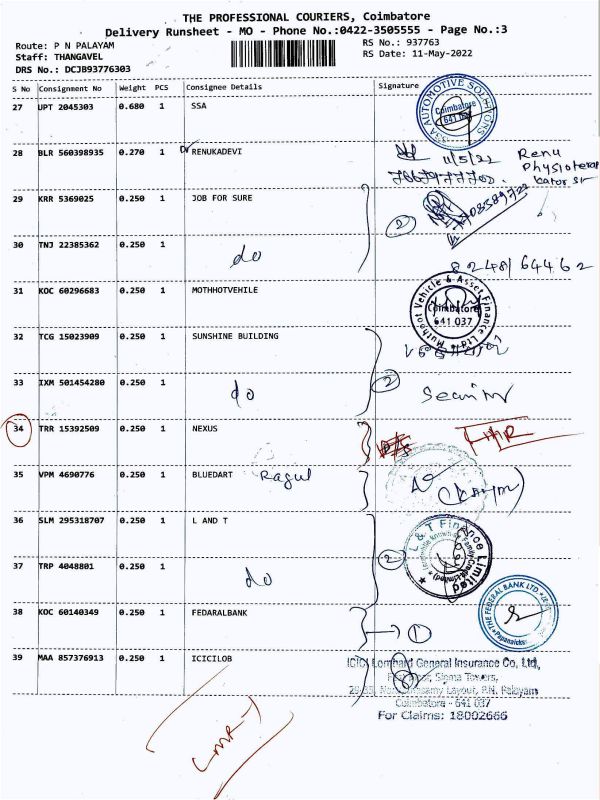 THE PROFESSIONAL COURIERS, Coimbatore
Delivery Runsheet - MO - Phone No.:0422-3505555 - Page No.:3
Route: P N PALAYAM
RS No.: 937763
Staff: THANGAVEL
RS Date: 11-May-2022
DRS No.: DCJB93776303
S No Consignment No Weight PCS Consignee Details Signature
27 UPT 2045303 0.680 1 SSA
AUTOMOTIVE SOLUTIONS
Coimbatore
641
28 BLR 560398935 0.270 1 Dr RENUKADEVI
11/5/22 Renu
29 KRR 5369025 0.250 1 JOB FOR SURE
2
30 TNJ 22385362 0.250 1 do
8248164462
31 KOC 60296683 0.250 1 MOTHHOTVEHILE
Muthoot Vehicle & Asset Finance Ltd
Coimbatore
641 037
32 TCG 15023909 0.250 1 SUNSHINE BUILDING
33 IXM 501454280 0.250 1 do 2
34 TRR 15392509 0.250 1 NEXUS
35 VPM 4690776 0.250 1 BLUEDART Ragul
36 SLM 295318707 0.250 1 L AND T
L & T Finance Limited
37 TRP 4048801 0.250 1 do 2
38 KOC 60140349 0.250 1 FEDARALBANK
1
THE FEDERAL BANK LTD
39 MAA 857376913 0.250 1 ICICILOB
ICICI Lombard General Insurance Co, Ltd,
Floor, Sigma Towers,
Layout, P.N. Palayam
Coimbatore - 641 037
For Claims: 18002666